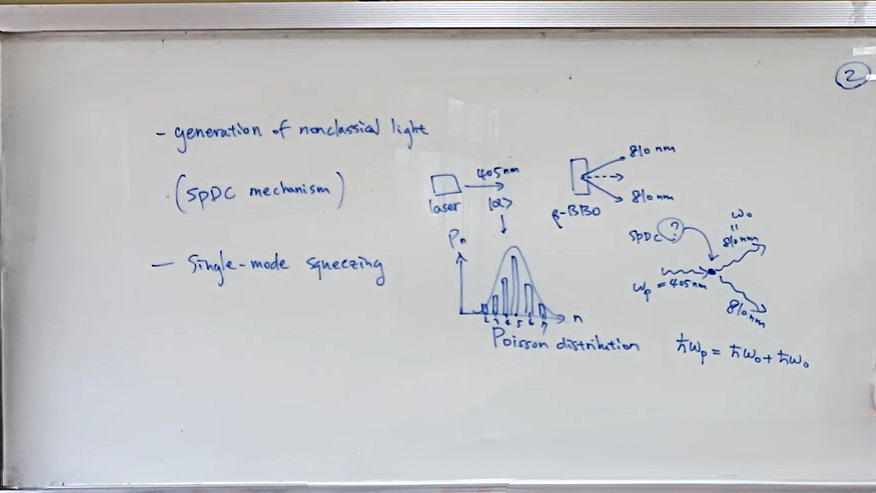 2
- generation of nonclassical light
(SPDC mechanism)
- Single-mode squeezing
405nm
laser
|α>
810 nm
810 nm
β-BBO
Pn
2 3 4 5 6 7
n
Poisson distribution
SPDC ?
ω₀
"
810nm
ωp = 405nm
810nm
ħωp = ħω₀ + ħω₀